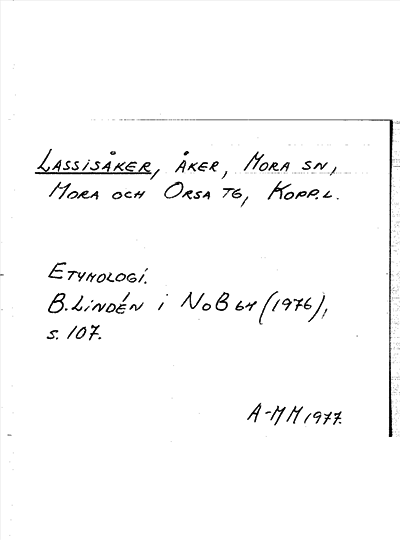 LASSISÅKER, ÅKER, MORA SN,
MORA OCH ORSA TG, KOPP.L.
ETYMOLOGI.
B. LINDÉN i NoB 64 (1976),
s. 107.
A-MM 1977.